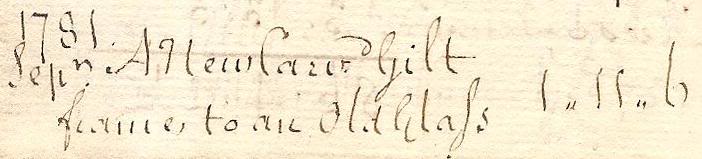 1781
Sepr. A New Carvd Gilt
frame to an Old Glaſs 1 „ 11 „ 6